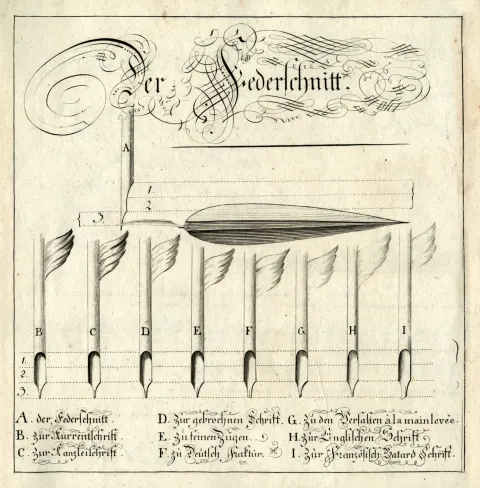 Der Federschnitt.
A
1.
2.
3.
B C D E F G H I
1.
2.
3.
A. der Federschnitt
B. zur Kurrentschrift.
C. zur Kanzleischrift.
D. zur gebrochnen Schrift.
E. Zu feinen Zügen.
F. zu Deutsch Fraktur.
G. Zu den Versalien à la main levée.
H. zur Englischen Schrift
I. zür Französisch Batard Schrift.